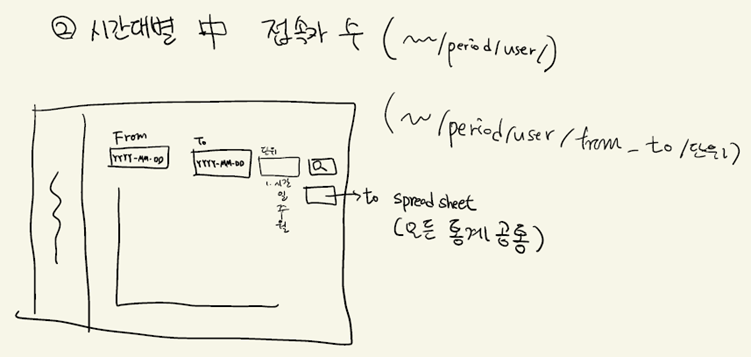 ② 시간대별 中 접속자 수 ( ~~/period/user/)
( ~/period/user/from_to/단위)
From
YYYY-MM-DD
To
YYYY-MM-DD
단위
1. 시간
일
주
월
to spread sheet
(모든 통계 공통)